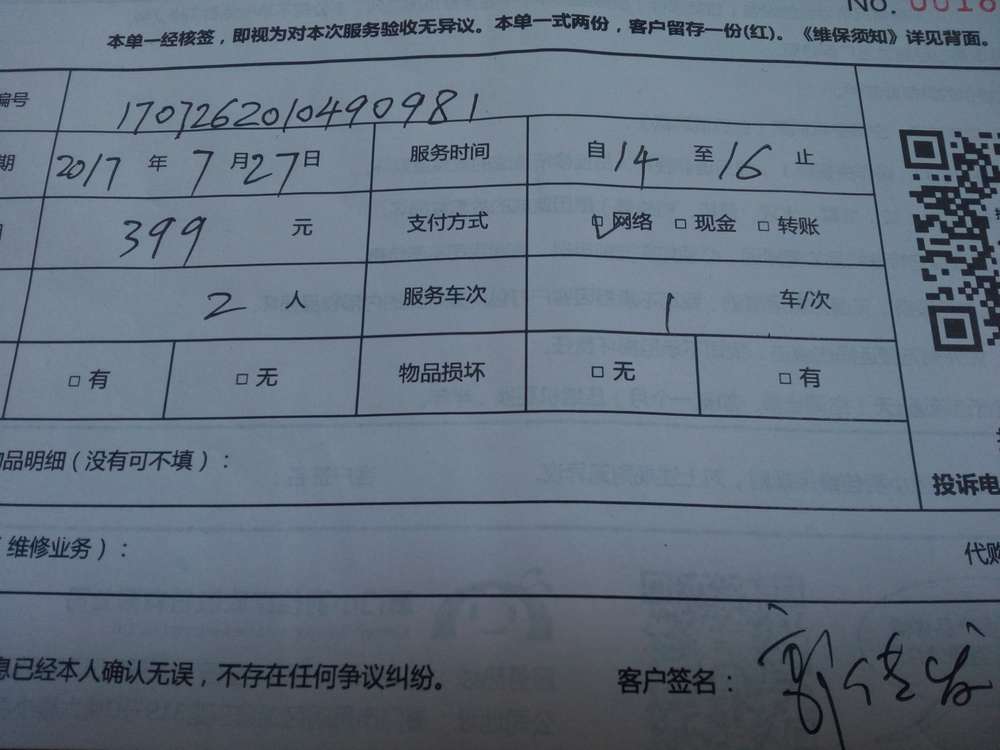 No. 0016
本单一经核签，即视为对本次服务验收无异议。本单一式两份，客户留存一份(红)。《维保须知》详见背面。
编号 1707262010490981
期 2017 年 7 月 27 日 服务时间 自 14 至 16 止
399 元 支付方式 □ 网络 □ 现金 □ 转账
2 人 服务车次 1 车/次
□ 有 □ 无 物品损坏 □ 无 □ 有
品明细（没有可不填）：
投诉电
（维修业务）：
代购
息已经本人确认无误，不存在任何争议纠纷。 客户签名：